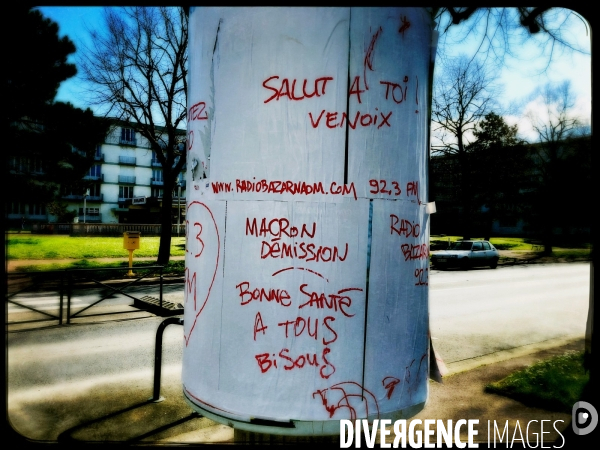 SALUT A TOI !
VENOIX
WWW.RADIOBAZARNAOM.COM 92,3 FM
MACRON
DÉMISSION
BONNE SANTÉ
A TOUS
BISOUS
RADIO
BAZAR
92
DIVERGENCE IMAGES